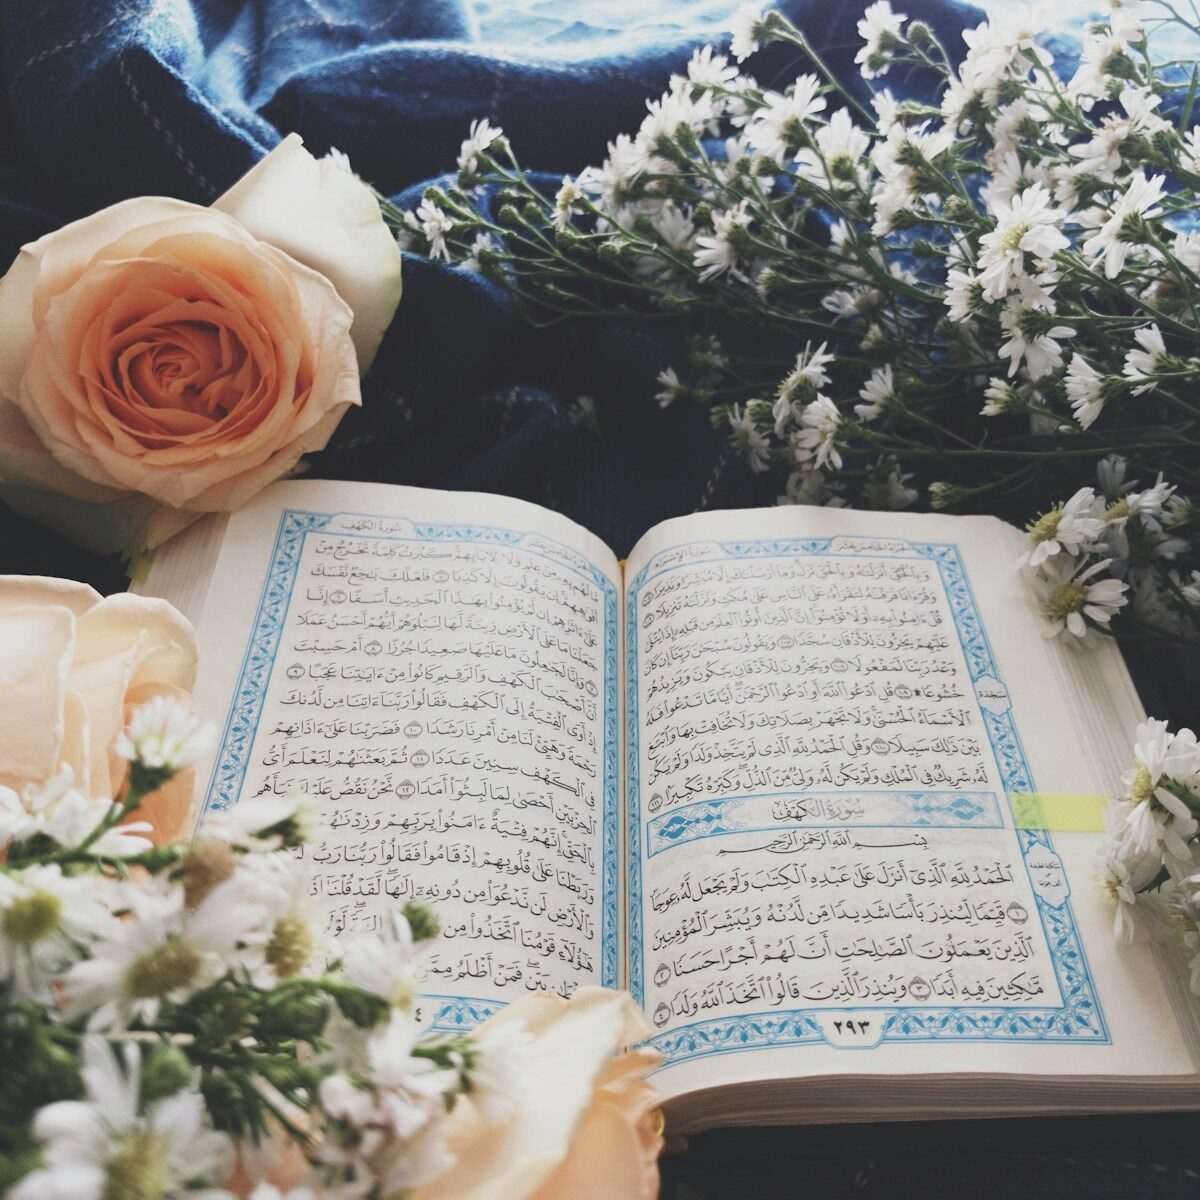 سورة الإسراء
الجزء الخامس عشر
وَبِالْحَقِّ أَنزَلْنَٰهُ وَبِالْحَقِّ نَزَلَ وَمَا أَرْسَلْنَٰكَ إِلَّا مُبَشِّرًا وَنَذِيرًا ١٠٥
وَقُرْءَانًا فَرَقْنَٰهُ لِتَقْرَأَهُ عَلَى النَّاسِ عَلَىٰ مُكْثٍ وَنَزَّلْنَٰهُ تَنزِيلًا ١٠٦
قُلْ ءَامِنُوا بِهِ أَوْ لَا تُؤْمِنُوا إِنَّ الَّذِينَ أُوتُوا الْعِلْمَ مِن قَبْلِهِ إِذَا يُتْلَىٰ
عَلَيْهِمْ يَخِرُّونَ لِلْأَذْقَانِ سُجَّدًا ١٠٧ وَيَقُولُونَ سُبْحَٰنَ رَبِّنَا إِن كَانَ
وَعْدُ رَبِّنَا لَمَفْعُولًا ١٠٨ وَيَخِرُّونَ لِلْأَذْقَانِ يَبْكُونَ وَيَزِيدُهُمْ
خُشُوعًا ۩ ١٠٩ قُلِ ادْعُوا اللَّهَ أَوِ ادْعُوا الرَّحْمَٰنَ أَيًّا مَّا تَدْعُوا فَلَهُ
سجدة
الْأَسْمَاءُ الْحُسْنَىٰ وَلَا تَجْهَرْ بِصَلَاتِكَ وَلَا تُخَافِتْ بِهَا وَابْتَغِ
بَيْنَ ذَٰلِكَ سَبِيلًا ١١٠ وَقُلِ الْحَمْدُ لِلَّهِ الَّذِي لَمْ يَتَّخِذْ وَلَدًا وَلَمْ يَكُن
لَّهُ شَرِيكٌ فِي الْمُلْكِ وَلَمْ يَكُن لَّهُ وَلِيٌّ مِّنَ الذُّلِّ وَكَبِّرْهُ تَكْبِيرًا ١١١
سُورَةُ الكَهْفِ
بِسْمِ اللَّهِ الرَّحْمَٰنِ الرَّحِيمِ
الْحَمْدُ لِلَّهِ الَّذِي أَنزَلَ عَلَىٰ عَبْدِهِ الْكِتَٰبَ وَلَمْ يَجْعَل لَّهُ عِوَجَا
١ قَيِّمًا لِّيُنذِرَ بَأْسًا شَدِيدًا مِّن لَّدُنْهُ وَيُبَشِّرَ الْمُؤْمِنِينَ
الَّذِينَ يَعْمَلُونَ الصَّٰلِحَٰتِ أَنَّ لَهُمْ أَجْرًا حَسَنًا ٢
مَّٰكِثِينَ فِيهِ أَبَدًا ٣ وَيُنذِرَ الَّذِينَ قَالُوا اتَّخَذَ اللَّهُ وَلَدًا ٤
٢٩٣
الجزء الخامس عشر
سورة الكهف
مَّا لَهُم بِهِ مِنْ عِلْمٍ وَلَا لِءَابَائِهِمْ كَبُرَتْ كَلِمَةً تَخْرُجُ مِنْ
أَفْوَٰهِهِمْ إِن يَقُولُونَ إِلَّا كَذِبًا ٥ فَلَعَلَّكَ بَٰخِعٌ نَّفْسَكَ
عَلَىٰ ءَاثَٰرِهِمْ إِن لَّمْ يُؤْمِنُوا بِهَٰذَا الْحَدِيثِ أَسَفًا ٦ إِنَّا
جَعَلْنَا مَا عَلَى الْأَرْضِ زِينَةً لَّهَا لِنَبْلُوَهُمْ أَيُّهُمْ أَحْسَنُ عَمَلًا
٧ وَإِنَّا لَجَٰعِلُونَ مَا عَلَيْهَا صَعِيدًا جُرُزًا ٨ أَمْ حَسِبْتَ
أَنَّ أَصْحَٰبَ الْكَهْفِ وَالرَّقِيمِ كَانُوا مِنْ ءَايَٰتِنَا عَجَبًا ٩
إِذْ أَوَى الْفِتْيَةُ إِلَى الْكَهْفِ فَقَالُوا رَبَّنَا ءَاتِنَا مِن لَّدُنكَ
رَحْمَةً وَهَيِّئْ لَنَا مِنْ أَمْرِنَا رَشَدًا ١٠ فَضَرَبْنَا عَلَىٰ ءَاذَانِهِمْ
فِي الْكَهْفِ سِنِينَ عَدَدًا ١١ ثُمَّ بَعَثْنَٰهُمْ لِنَعْلَمَ أَيُّ
الْحِزْبَيْنِ أَحْصَىٰ لِمَا لَبِثُوا أَمَدًا ١٢ نَّحْنُ نَقُصُّ عَلَيْكَ نَبَأَهُم
بِالْحَقِّ إِنَّهُمْ فِتْيَةٌ ءَامَنُوا بِرَبِّهِمْ وَزِدْنَٰهُمْ
وَرَبَطْنَا عَلَىٰ قُلُوبِهِمْ إِذْ قَامُوا فَقَالُوا رَبُّنَا رَبُّ
وَالْأَرْضِ لَن نَّدْعُوَا مِن دُونِهِ إِلَٰهًا لَّقَدْ قُلْنَا إِذًا
هَٰؤُلَاءِ قَوْمُنَا اتَّخَذُوا مِن ءَالِهَةً لَّوْلَا
بَيِّنٍ فَمَنْ أَظْلَمُ مِمَّنِ